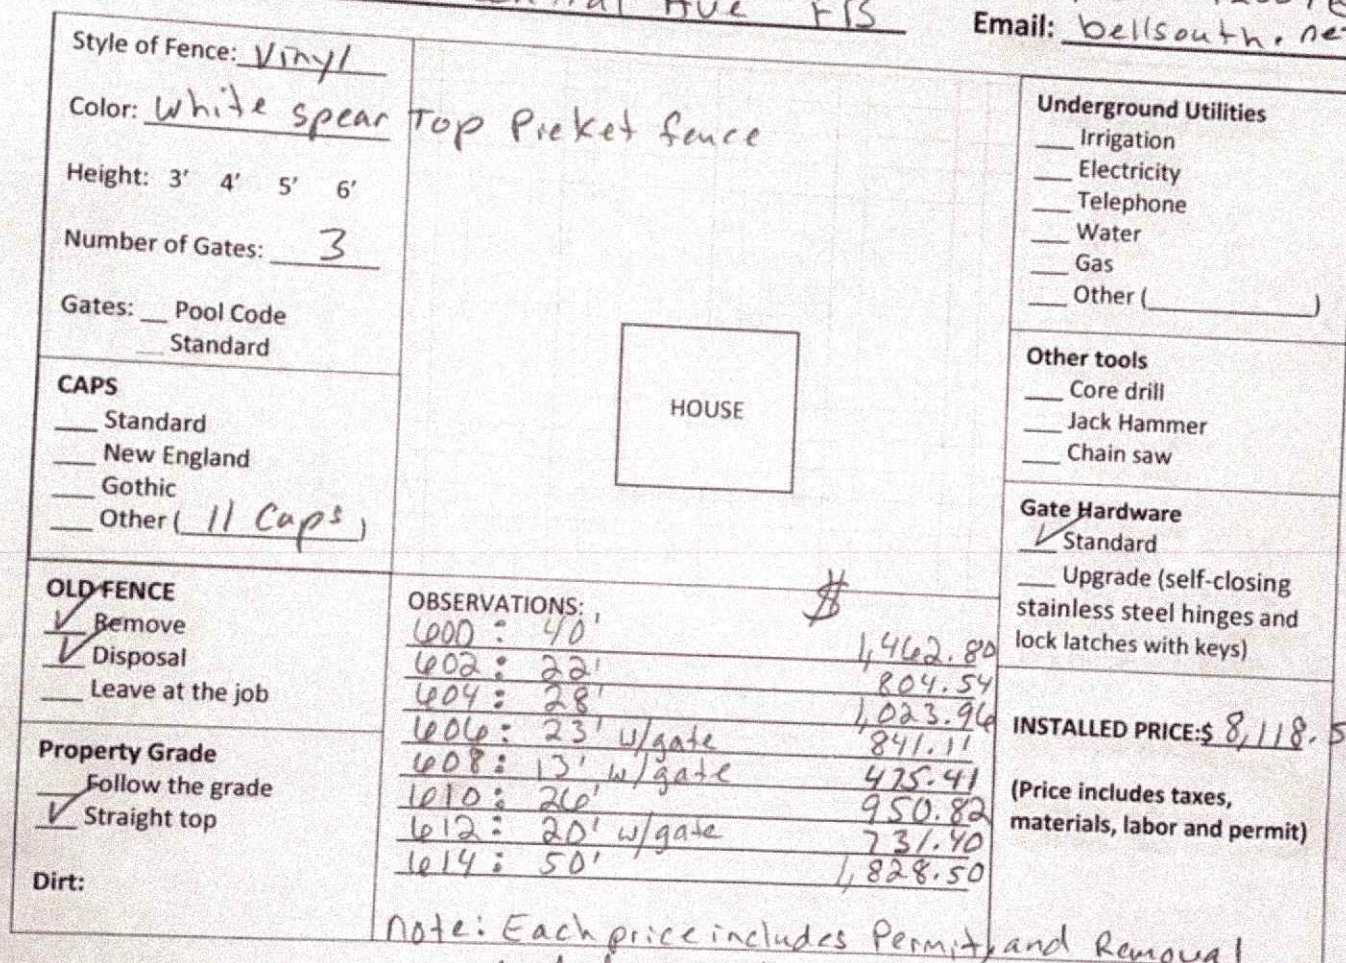 Ave FTS
Email: bellsouth. ne
Style of Fence: Vinyl
Color: White spear Top Picket fence
Height: 3' 4' 5' 6'
Number of Gates: 3
Gates: __ Pool Code
__ Standard
CAPS
__ Standard
__ New England
__ Gothic
__ Other ( 11 Caps )
OLD FENCE
✓ Remove
✓ Disposal
__ Leave at the job
Property Grade
__ Follow the grade
✓ Straight top
Dirt:
HOUSE
OBSERVATIONS: $
600 : 40' 1,462.80
602 : 22' 804.54
604 : 28' 1,023.96
606 : 23' w/gate 841.11
608 : 13' w/gate 475.41
610 : 26' 950.82
612 : 20' w/gate 731.40
614 : 50' 1,828.50
note: Each price includes Permit, and Removal
Underground Utilities
__ Irrigation
__ Electricity
__ Telephone
__ Water
__ Gas
__ Other (__________)
Other tools
__ Core drill
__ Jack Hammer
__ Chain saw
Gate Hardware
✓ Standard
__ Upgrade (self-closing
stainless steel hinges and
lock latches with keys)
INSTALLED PRICE:$ 8,118.5
(Price includes taxes,
materials, labor and permit)